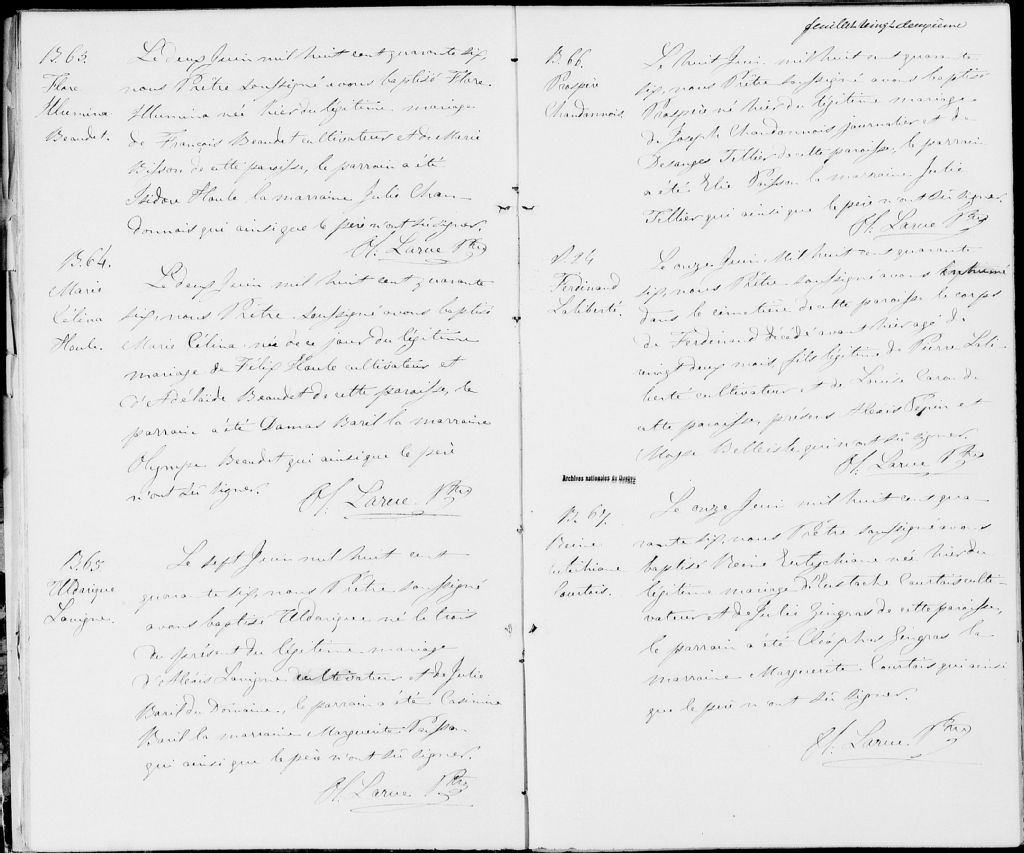 B. 63.
Flore
Illumina
Beaudet.
Le deux Juin mil huit cent quarante six,
nous Prêtre soussigné avons baptisé Flore
Illumina née hier du légitime mariage
de François Beaudet cultivateur et de Marie
Bisson de cette paroisse, le parrain a été
Isidore Houle la marraine Julie Chan-
donnais qui ainsi que le père n'ont su signer.
Ol. Larue Ptre
B. 64.
Marie
Célina
Houle.
Le deux Juin mil huit cent quarante
six, nous Prêtre soussigné avons baptisé
Marie Célina née de ce jour du légitime
mariage de Félix Houle cultivateur et
d'Adelaïde Beaudet de cette paroisse, le
parrain a été Damas Baril la marraine
Olympe Beaudet qui ainsi que le père
n'ont su signer.
Ol. Larue Ptre
B. 65
Uldarique
Lavigne.
Le sept Juin mil huit cent
quarante six, nous Prêtre soussigné
avons baptisé Uldarique né le trois
du présent du légitime mariage
d'Alexis Lavigne cultivateur et de Julie
Baril du Domaine, le parrain a été Casimire
Baril la marraine Marguerite
qui ainsi que le père n'ont su signer.
Ol. Larue Ptre
feuillet vingt deuxième
B. 66.
Prospère
Chandonnais.
Le huit Juin mil huit cent quarante
six, nous Prêtre soussigné avons baptisé
Prospère né hier du légitime mariage
de Joseph Chandonnais journalier et de
Desanges Tellier de cette paroisse, le parrain
a été Elie Poisson la marraine Julie
Tellier qui ainsi que le père n'ont su signer.
Ol. Larue Ptre
S. 14
Ferdinand
Laliberté.
Le onze Juin mil huit cent quarante
six, nous Prêtre soussigné avons inhumé
dans le cimetière de cette paroisse le corps
de Ferdinand décédé avant hier agé de
vingt deux mois, fils légitime de Pierre Lali-
berté cultivateur et de Louise Caron de
cette paroisse, présens Alexis Pepin et
Moyse Belleisle qui n'ont su signer.
Ol. Larue Ptre
Archives nationales du Québec
B. 67.
Reine
Eutichiane
Courtois.
Le onze Juin mil huit cent qua-
rante six, nous Prêtre soussigné avons
baptisé Reine Eutychiane née hier du
légitime mariage d'Eustache Courtois culti-
vateur et de Julie Gingras de cette paroisse,
le parrain a été Cléophas Gingras la
marraine Marguerite Courtois qui ainsi
que le père n'ont su signer.
Ol. Larue Ptre